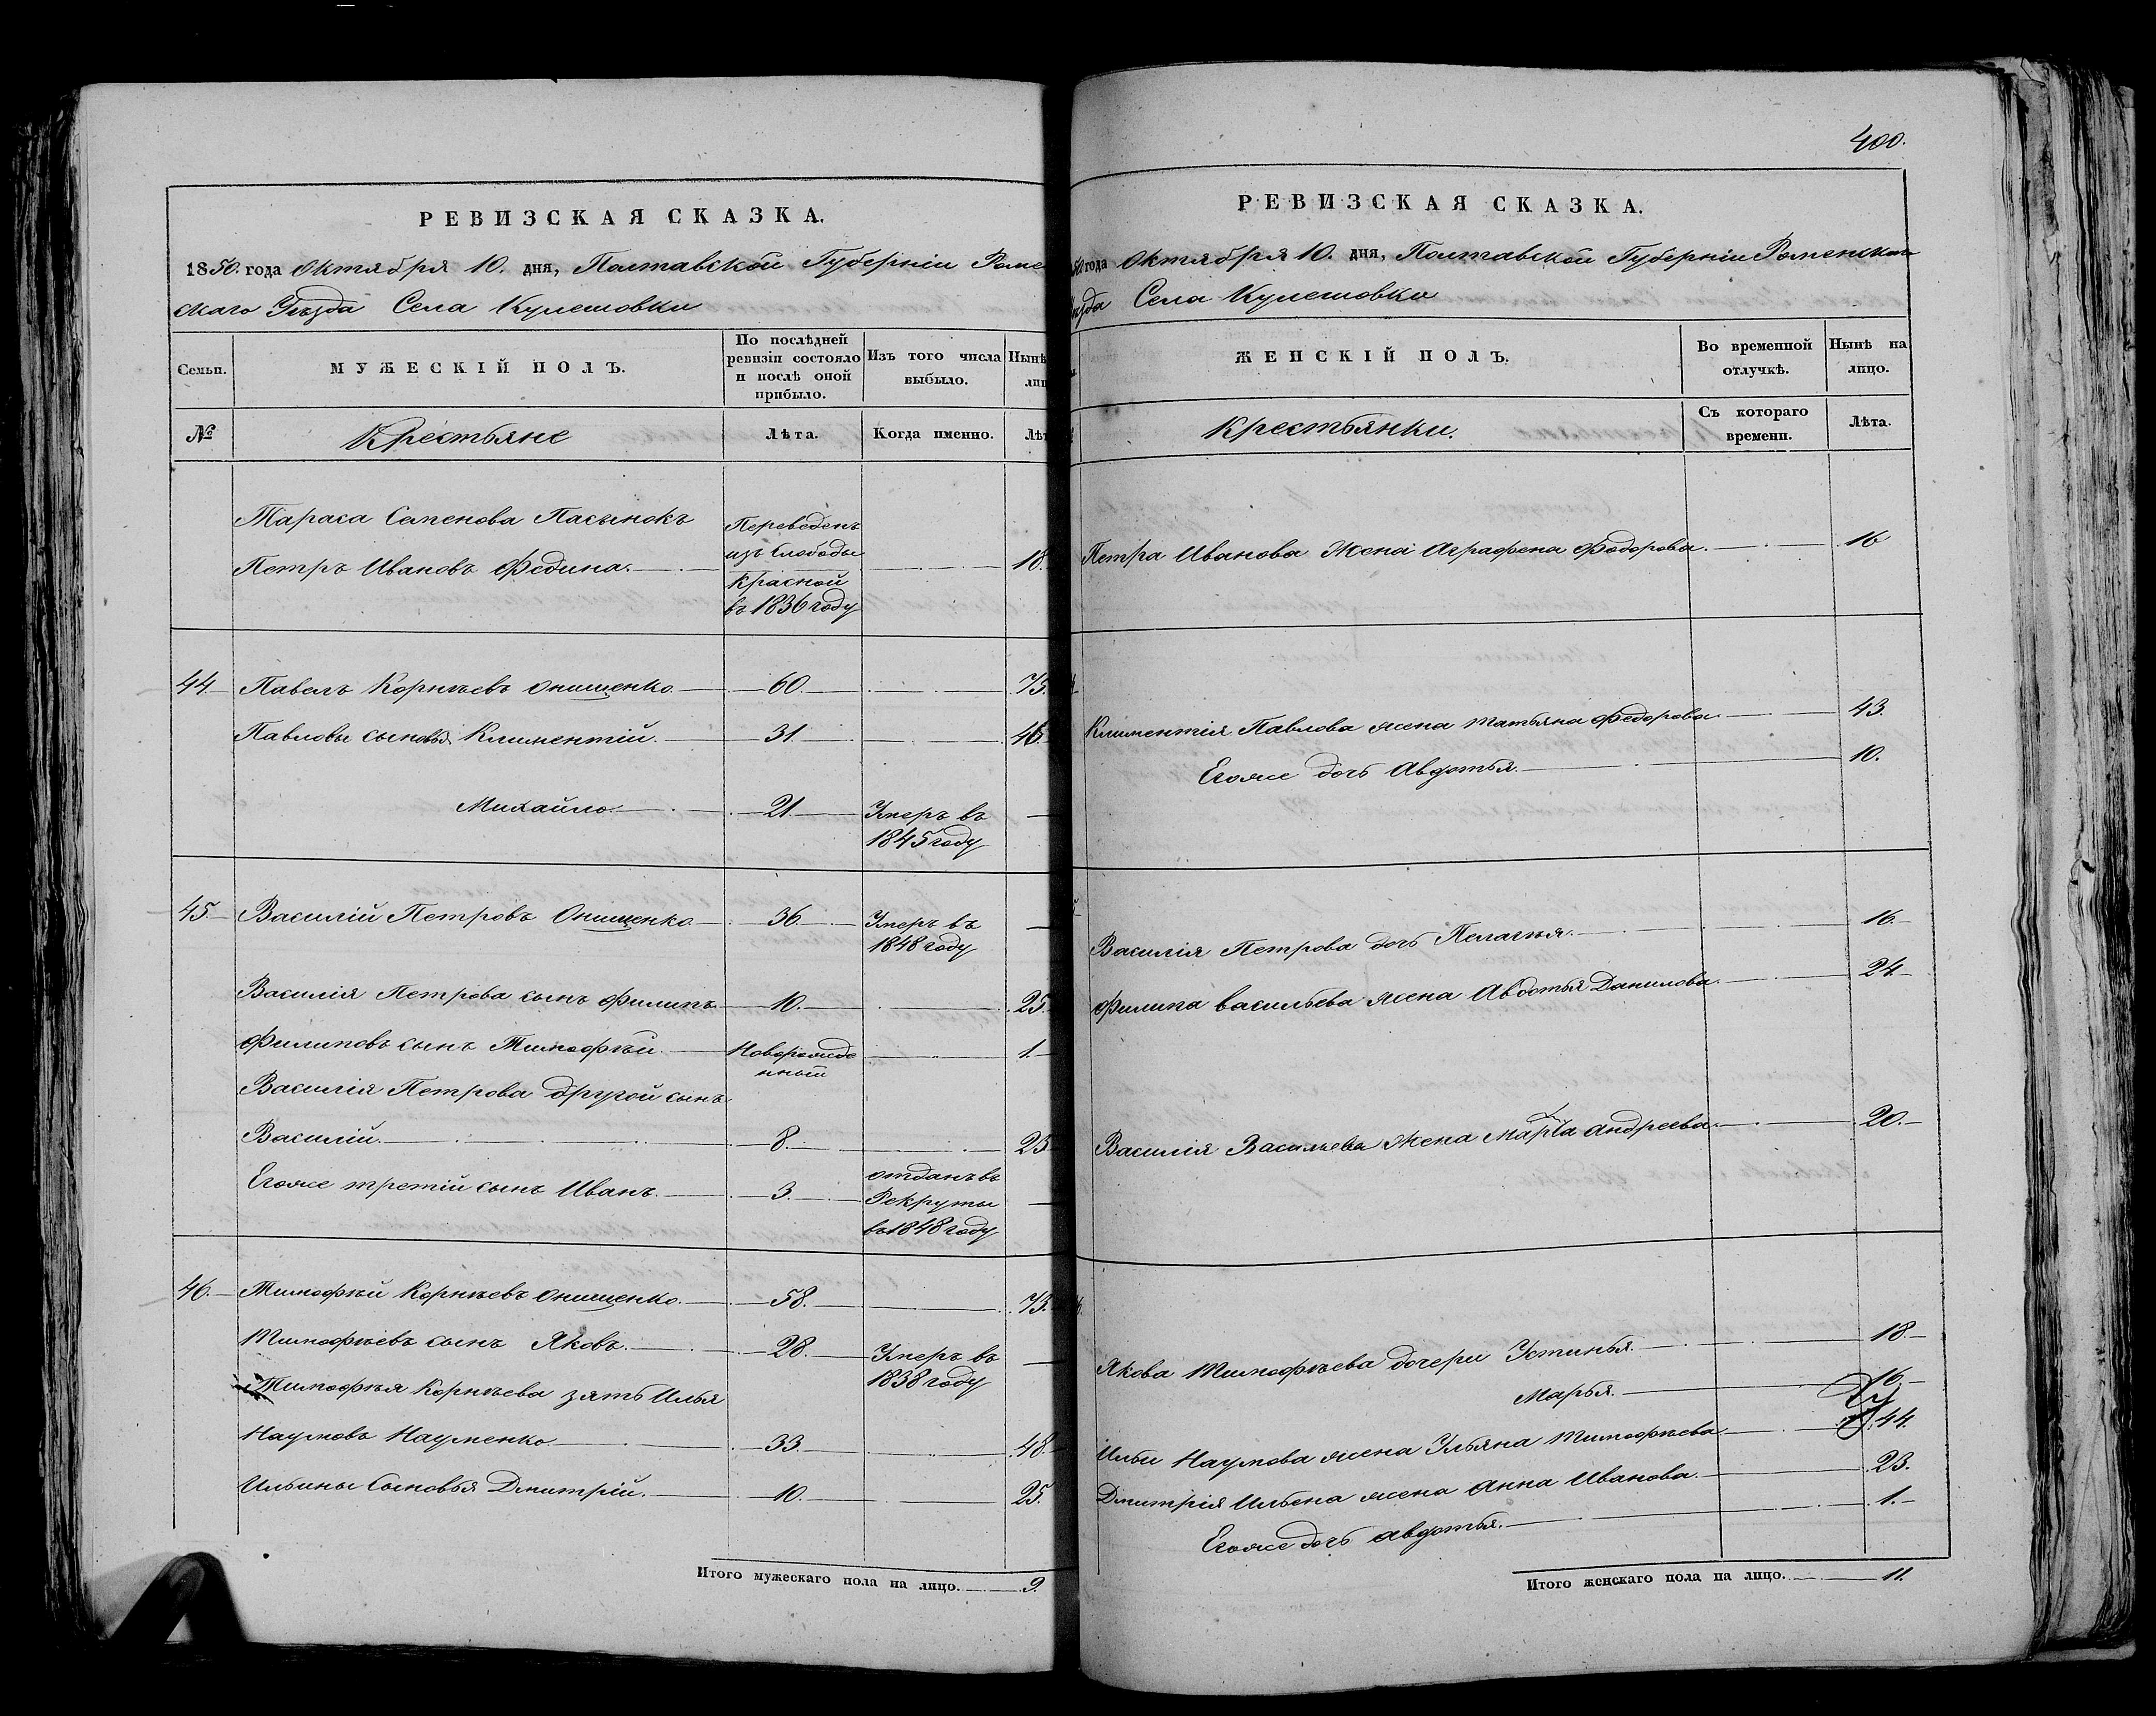 РЕВИЗСКАЯ СКАЗКА.
1850. года Октября 10. дня, Полтавской Губерніи Роме
скаго Уѣзда Села Кулешовки
Семьи.
МУЖЕСКІЙ ПОЛЪ.
По послѣдней
ревизіи состояло
и послѣ оной
прибыло.
Изъ того числа
выбыло.
Нынѣ
лиц
№
Крестьяне
Лѣта.
Когда именно.
Лѣт
Тараса Семенова Пасынокъ
Петръ Ивановъ Федина.
Переведенъ
изъ Слободы
Красной
въ 1836 году
18.
44. Павелъ Корнѣевъ Онищенко. 60. 75.
Павловы сыновья Климентій. 31. 46.
Михайло. 21. Умеръ въ
1845 году
45. Василій Петровъ Онищенко 36. Умеръ въ
1848 году
Василія Петрова сынъ Филипъ 10. 25.
Филиповъ сынъ Тимофѣй. Новорожде 1.
нный
Василія Петрова другой сынъ
Василій. 8. 23
Егоже третій сынъ Иванъ. 3. отданъ въ
Рекруты
въ 1848 году
46. Тимофѣй Корнѣевъ Онищенко. 58. 73.
Тимофѣевъ сынъ Яковъ. 28. Умеръ въ
1838 году
Тимофѣя Корнѣева зять Илья
Наумовъ Науменко 33. 48.
Ильины Сыновья Дмитрій. 10. 25.
Итого мужескаго пола на лицо. 9.
400.
РЕВИЗСКАЯ СКАЗКА.
50 года Октября 10. дня, Полтавской Губерніи Роменскаго
ѣзда Села Кулешовки
ЖЕНСКІЙ ПОЛЪ.
Во временной
отлучкѣ.
Нынѣ на
лицо.
Крестьянки.
Съ котораго
времени.
Лѣта.
Петра Иванова Жена Аграфена Федорова. 16
Климентія Павлова жена Татьяна Федорова. 43.
Егоже дочь Авдотья. 10.
Василія Петрова дочь Пелагѣя. 16.
Филипа васильева жена Авдотья Данилова. 24
Василія Васильева Жена Марфа Андреева. 20.
Якова Тимофѣева дочери Устинья. 18.
Марья. 16.
Ильи Наумова жена Ульяна Тимофѣева 44.
Дмитрія Ильена жена Анна Иванова. 23.
Егоже дочь Авдотья. 1.
Итого женскаго пола на лицо. 11.